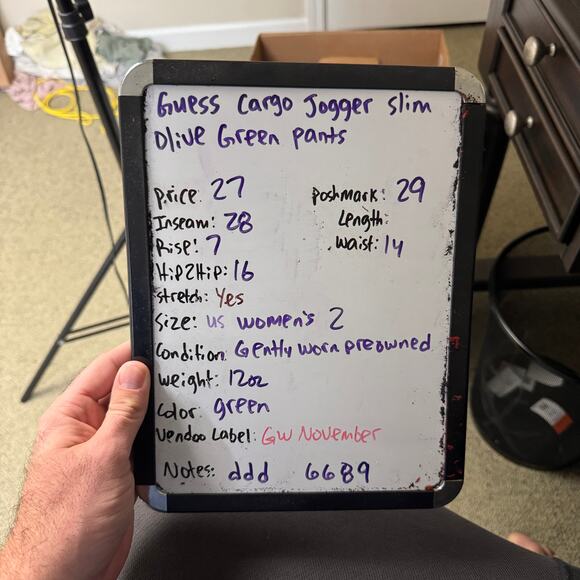 Guess Cargo Jogger slim
Olive Green pants
price: 27
poshmark: 29
Inseam: 28
Length:
Rise: 7
waist: 14
Hip2Hip: 16
stretch: Yes
Size: US women's 2
Condition: Gently worn preowned
weight: 12oz
Color: green
Vendoo Label: GW November
Notes: ddd 6689